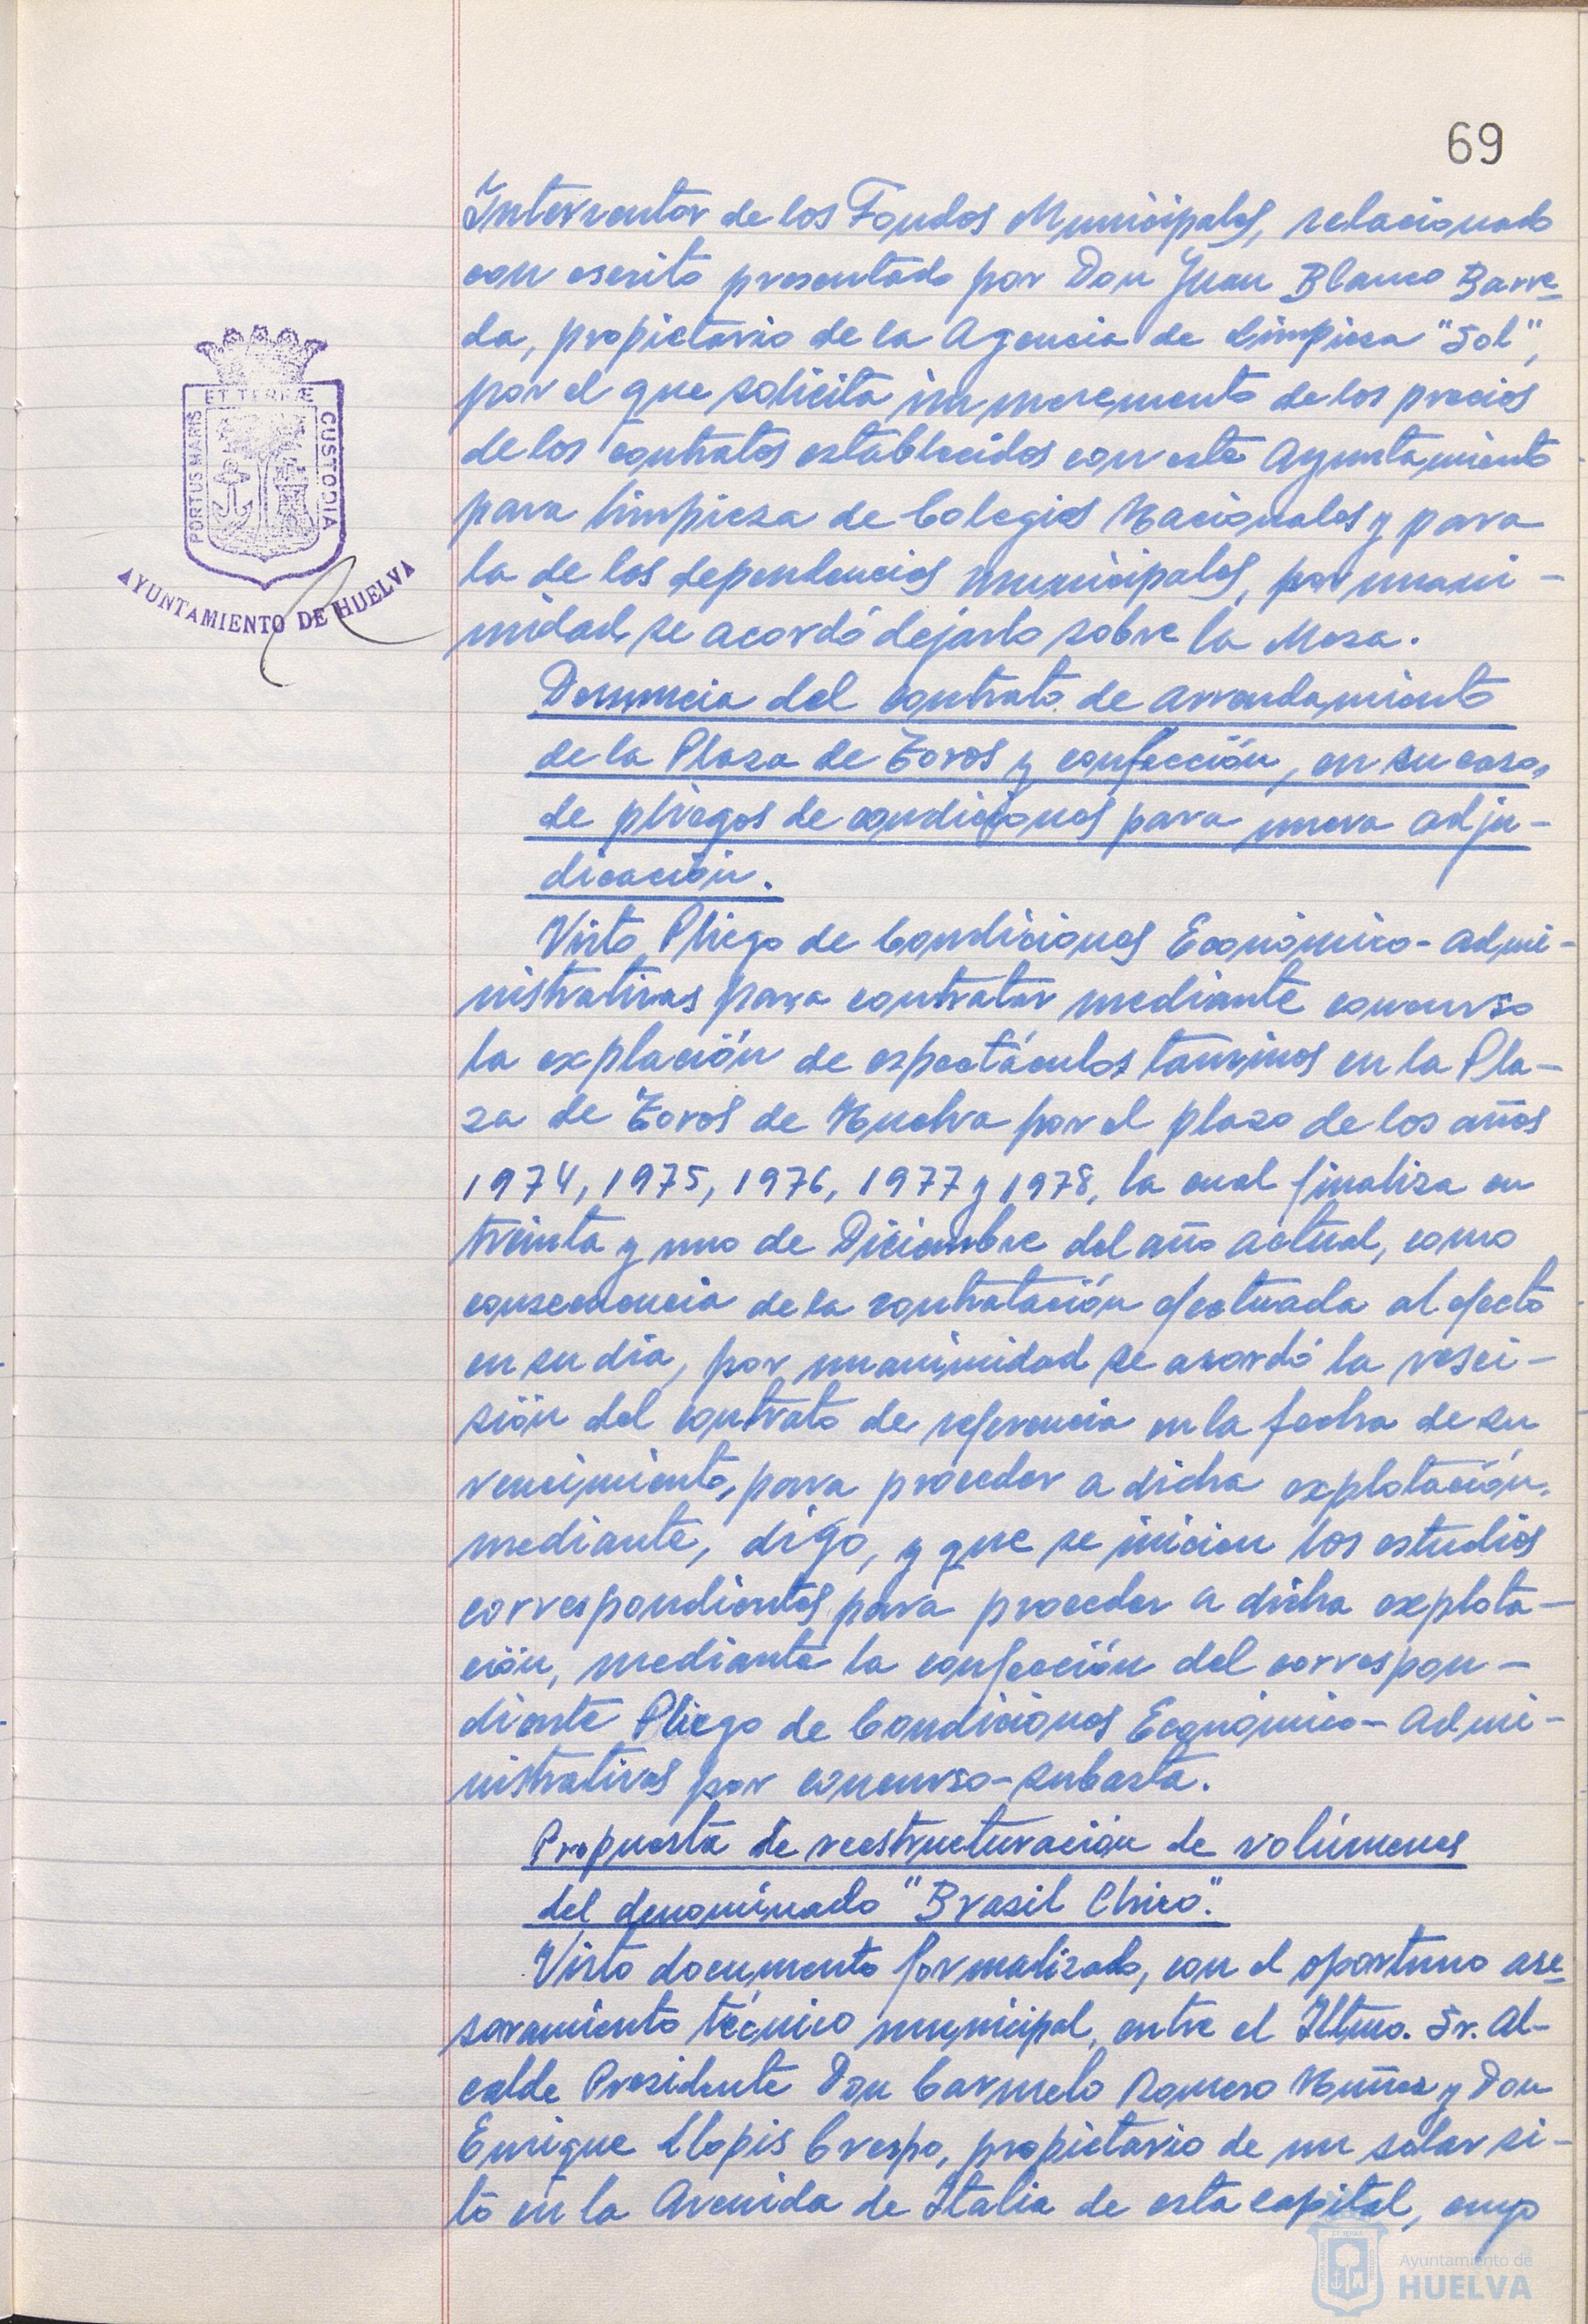 69
Interventor de los Fondos Municipales, relacionado
con escrito presentado por Don Juan Blanco Barre-
da, propietario de la Agencia de Limpieza "Sol",
por el que solicita un incremento de los precios
de los contratos establecidos con este Ayuntamiento
para limpieza de Colegios Nacionales y para
la de las dependencias municipales, por unani-
midad, se acordó dejarlo sobre la Mesa.
Denuncia del contrato de arrendamiento
de la Plaza de Toros y confección, en su caso,
de pliegos de condiciones para nueva adju-
dicación.
Visto Pliego de Condiciones Económico-Admi-
nistrativas para contratar mediante concurso
la explación de espectáculos taurinos en la Pla-
za de Toros de Huelva por el plazo de los años
1974, 1975, 1976, 1977 y 1978, la cual finaliza en
treinta y uno de Diciembre del año actual, como
consecuencia de la contratación efectuada al efecto
en su día, por unanimidad se acordó la resci-
sión del contrato de referencia en la fecha de su
vencimiento, para proceder a dicha explotación,
mediante, digo, y que se inicien los estudios
correspondientes para proceder a dicha explota-
ción, mediante la confección del correspon-
diente Pliego de Condiciones Económico-Admi-
nistrativas por concurso-subasta.
Propuesta de reestructuración de volúmenes
del denominado "Brasil Chico".
Visto documento formalizado, con el oportuno ase-
soramiento técnico municipal, entre el Iltmo. Sr. Al-
calde Presidente Don Carmelo Romero Núñez y Don
Enrique Llopis Crespo, propietario de un solar si-
to en la Avenida de Italia de esta capital, cuyo
PORTUS MARIS
ET TERRÆ
CUSTODIA
AYUNTAMIENTO DE HUELVA
Ayuntamiento de
HUELVA